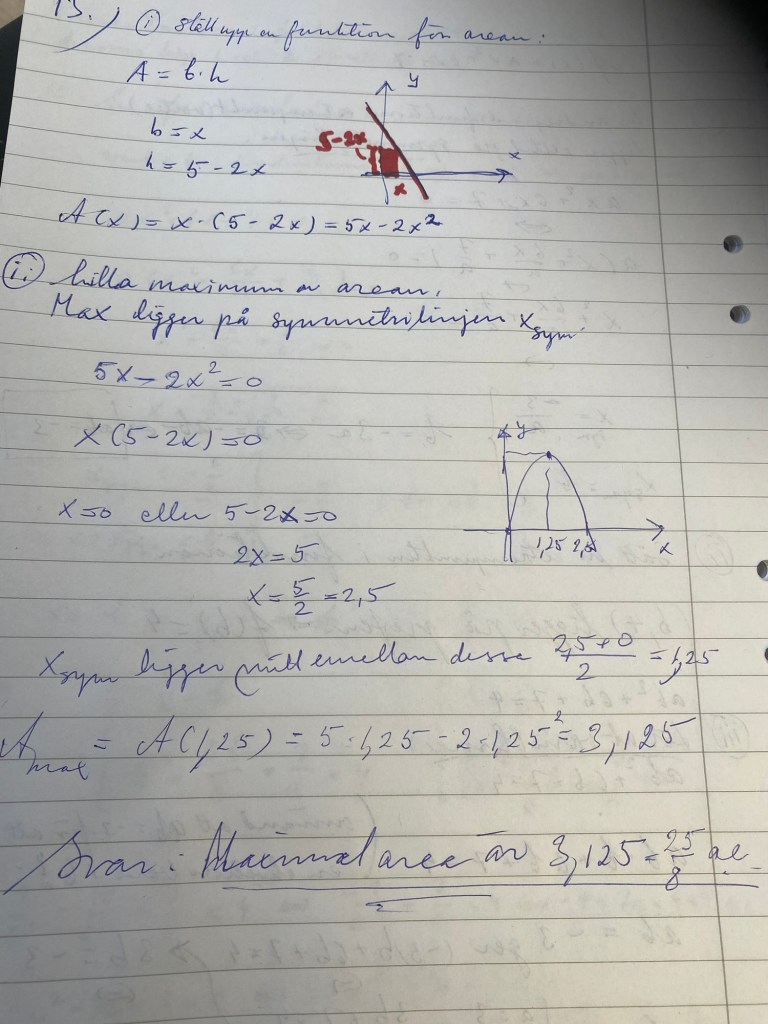 13.) (i) Ställ upp en funktion för arean:
A = b·h
y
b = x
5-2x
x
h = 5 - 2x
x
A(x) = x·(5 - 2x) = 5x - 2x²
(ii) hitta maximum av arean.
Max ligger på symmetrilinjen x_sym.
5x - 2x² = 0
x(5 - 2x) = 0
y
x = 0 eller 5 - 2x = 0
1,25 2,5
x
2x = 5
x = 5/2 = 2,5
x_sym ligger mitt emellan dessa (2,5+0)/2 = 1,25
A_max = A(1,25) = 5·1,25 - 2·1,25² = 3,125
Svar: Maximal area är 3,125 = 25/8 ae